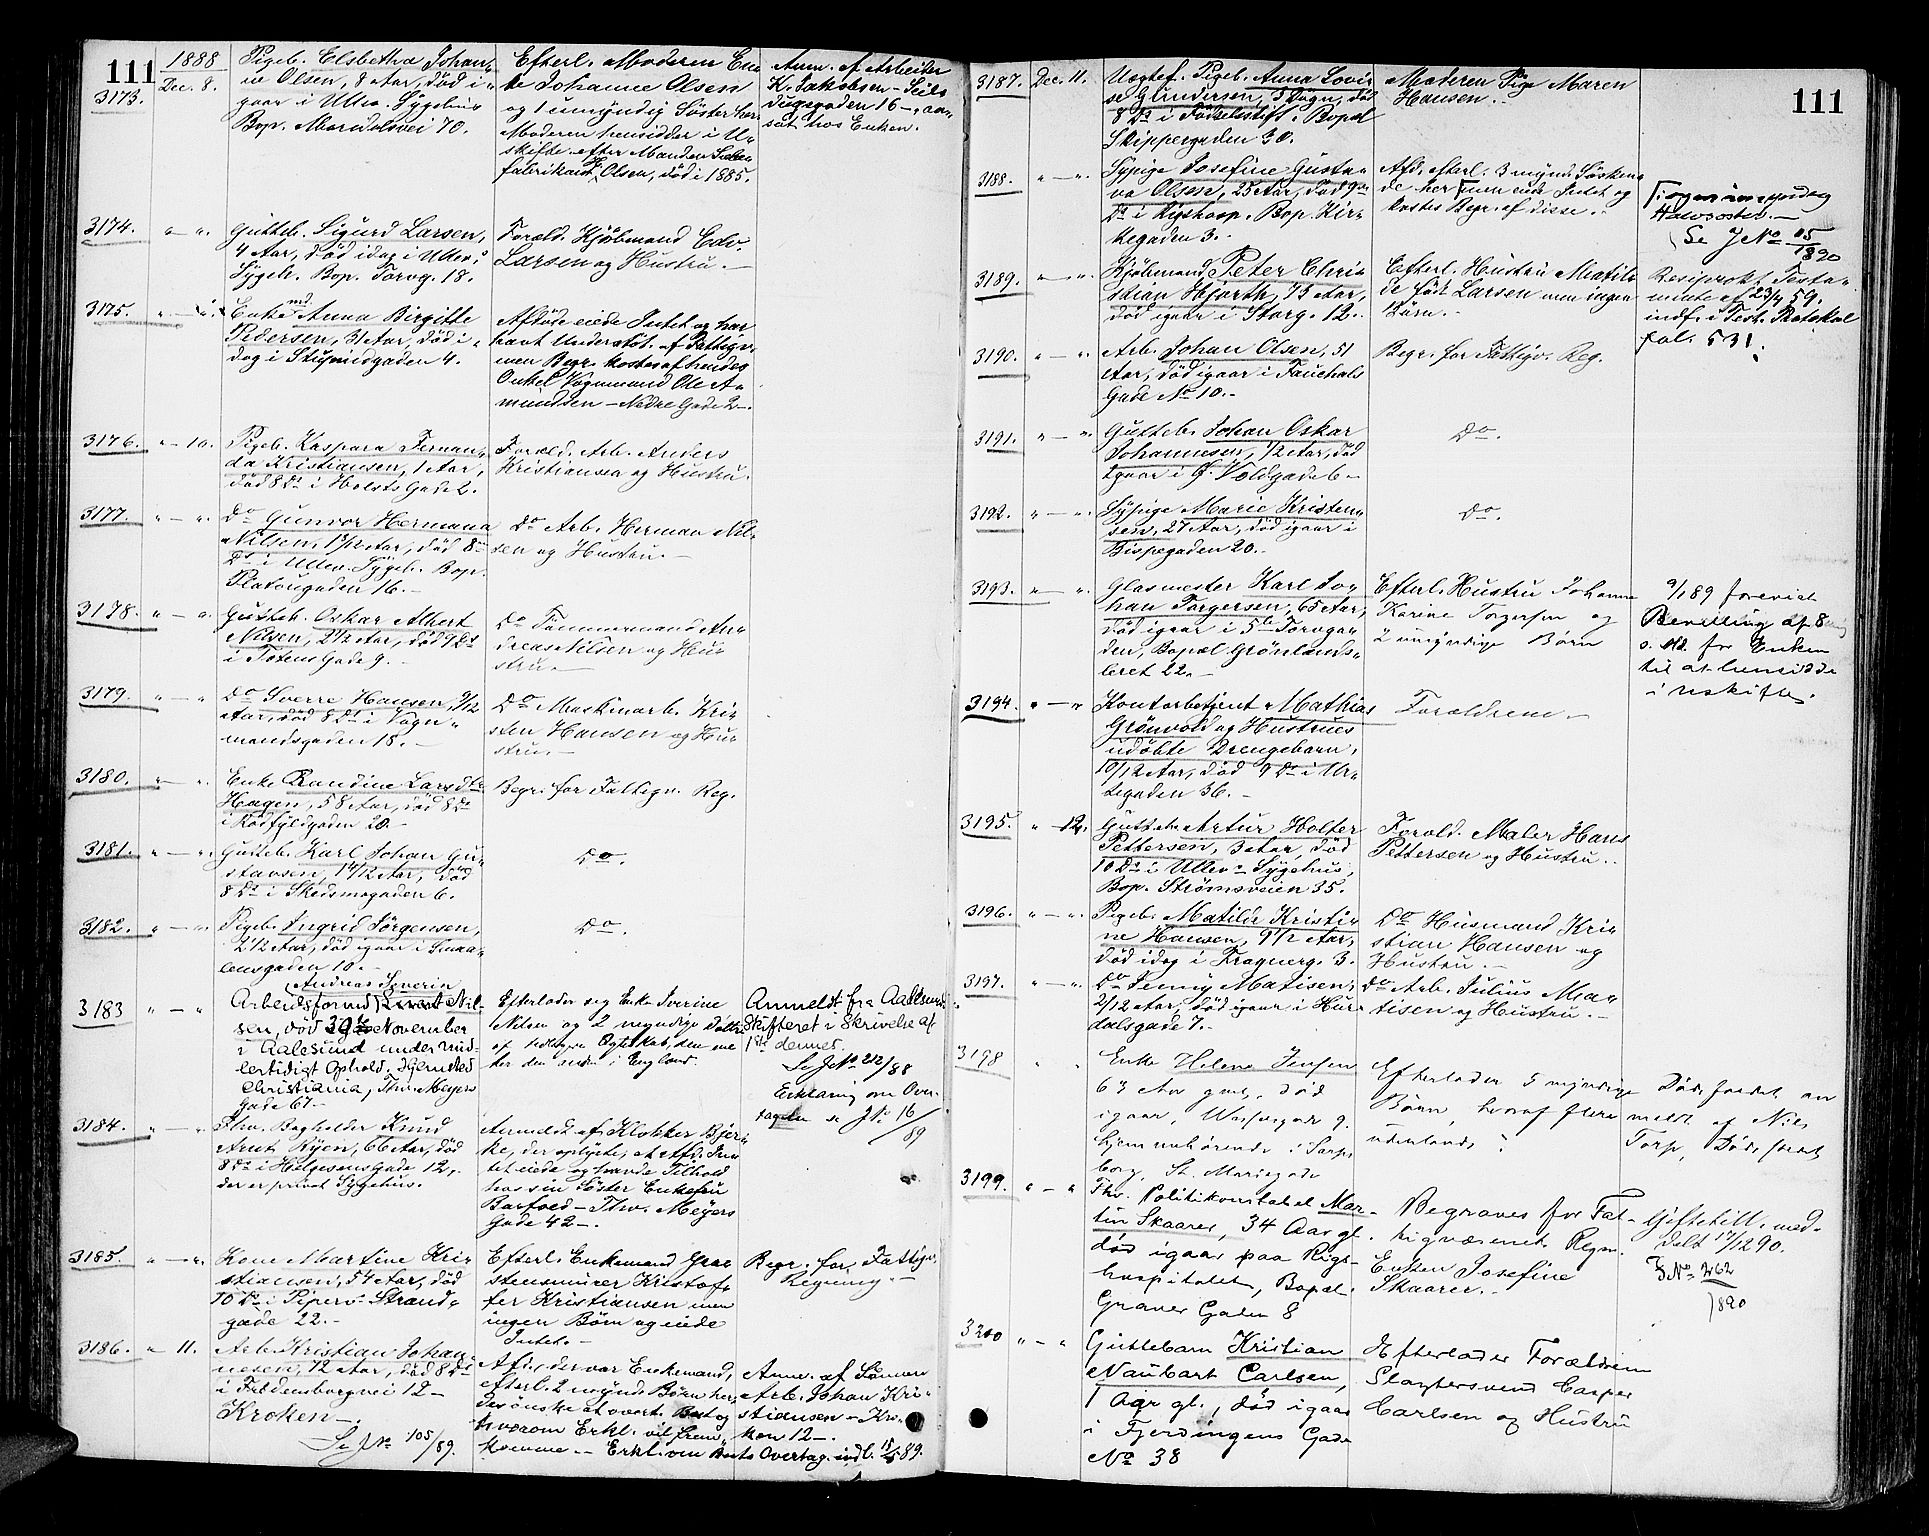 111
1888
3173. Dec. 8.
Pigeb. Elsbetha Johan-
ne Olsen, 8 Aar, død i-
gaar i Ullev. Sygehus
Bop. Maridalsvei 70.
Efterl. Moderen En-
ke Johanne Olsen
og 1 umyndig Søster her
Moderen hensidder i U-
skifte efter Manden
fabrikant H. Olsen, død i 1885.
Anm. af Arbeider
K. Jakobsen - Seils
dugsgaden 16 -
hos Enken.
3174. " - "
Gutteb. Sigurd Larsen,
4 Aar, død idag i Ullev.
Sygeh. Bop. Torvg. 18.
Foræld. Kjøbmand Edv.
Larsen og Hustru. -
3175. " - "
Enke Anna Birgitte
Pedersen, 31 Aar, død i-
dag i Stupinedgaden 4.
Afdøde eiede Intet og har
havt Understøt. af Fattigv.
men Begr. kostes af hendes
Onkel Vognmand Ole A-
mundsen - Nedre Gade 2 -.
3176. " - 10.
Pigeb. Kaspara Fernan-
da Kristiansen, 1 Aar,
død 8 Ds i Holsts Gade 2.
Foræld. Arb. Anders
Kristiansen og Hustru.
3177. " - "
Do Gunvor Hermana
Nilsen, 1 3/12 Aar, død 8de
Ds i Ullev. Sygeh. Bop.
Platougaden 16. -
Do Arb. Herman Nil-
sen og Hustru. -
3178. " - "
Gutteb. Oskar Albert
Nilsen, 2 1/2 Aar, død 9 Ds
i Totens Gade 9. -
Do Tømmermand An-
dreas Nilsen og Hus-
tru. -
3179. " - "
Do Sverre Hansen, 9/12
Aar, død 8 Ds i Vogn-
mandsgaden 18. -
Do Maskinarb. Kri-
sten Hansen og Hus-
tru. -
3180. " - "
Enke Randine Larsdtr
Hagen, 58 Aar, død 8 Ds
i Rødfyldgaden 20. -
Begr. for Fattigv. Reg.
3181. " - "
Gutteb. Karl Johan Gu-
stavsen, 1 4/12 Aar, død
8 Ds i Skedsmogaden 6.
Do.
3182. " - "
Pigeb. Ingrid Jørgensen,
2 1/2 Aar, død igaar i Smaa-
lensgaden 10. -
Do.
3183 " - "
Andreas Severin
Arbeidsformd Nil-
sen, død 29de November
i Aalesund under mid-
lertidigt Ophold. Hjemsted
Christiania, Thv. Meyers
Gade 67 -
Efterlader sig Enke Severine
Nilsen og 2 myndige Døttre
af tidligere Ægteskab, den ene
her den anden i England.
Anmeldt fra Aalesunds
Skifteret i Skrivelse af
1ste dennes.
Se J No 212/88
Erklæring om Over-
tagelse se J No 16/89
3184. " - "
Fhv. Bogholder Knud
Arnt Ryen, 66 Aar, død
8 Ds i Helgesens Gade 12,
der er privat Sygehus.
Anmeldt af Klokker Bjer-
ke, der oplyste, at Afd. In-
tet eiede og havde Tilhold
hos sin Søster Enkefru
Barfoed - Thv. Meyers
Gade 42 -.
3185. " - "
Kone Martine Kri-
stiansen, 54 Aar, død
10 Ds i Piperv. Strand-
gade 22. -
Efterl. Enkemand Graa-
stensmurer Kristof-
fer Kristiansen men
ingen Børn og eiede
Intet. -
Begr. for Fattigv.
Regning. -
3186. " 11.
Arb. Kristian Johan-
nesen, 72 Aar, død 8 Ds
i Fredensborgvei 12 -
Kroken -.
Se J No 105/89.
Afd., der var Enkemand,
efterl. 2 mynd. Børn her,
der ønske at overt. Boet og
hvorom Erkl. vil frem-
komme. - Erkl. om Boets Overtag. indl. 15/89.
Anm. af Sønnen
Arb. Johan Kri-
stiansen - Kro-
ken 12 -.
111
3187. Dec. 11.
Uægtef. Pigeb. Anna Lovi-
se Gundersen, 5 Døgn, død
8 Ds i Fødselsstift. Bopæl
Skippergaden 30.
Moderen Pige Maren
Hansen. -
3188. " - "
Sypige Josefine Gusta-
va Olsen, 25 Aar, død 9de
Ds i Rigshosp. Bop. Kir-
kegaden 3. -
Afd. efterl. 3 mynd. Søsken-
de her men eiede Intet og
kostes Begr. af disse. -
Se J No 05/1890
3189. " - "
Kjøbmand Peter Chri-
stian Hjorth, 73 Aar,
død igaar i Storg. 12. -
Efterl. Hustru Matil-
de født Larsen men ingen
Børn. -
Resiprokt Testa-
mente af 23/7 59.
indf. i Test. Protokol
fol. 531.
3190. " - "
Arb. Johan Olsen, 51
Aar, død igaar i Fauchals
Gade No 10. -
Begr. for Fattigv. Reg.
3191. " - "
Gutteb. Johan Oskar
Johannesen, 1/2 Aar, død
igaar i Ø. Voldgade 6 -
Do.
3192. " - "
Sypige Marie Kristen-
sen, 27 Aar, død igaar i
Bispegaden 20. -
Do.
3193. " - "
Glasmester Karl Jo-
han Torgersen, 65 Aar,
død igaar i 5te Torvga-
den, Bopæl Grønlands-
leret 22. -
Efterl. Hustru Johanne
Karine Torgersen og
2 umyndige Børn
9/1 89 forevist
Bevilling af 8
s. Md. for Enken
til at hensidde
i uskifte.
3194. " - "
Kontorbetjent Mathias
Grönvold og Hustrues
udøbte Drengebarn,
10/12 Aar, død 9 Ds i Ur-
tegaden 36. -
Forældrene -
3195. " - 12.
Gutteb. Artur Holter
Pettersen, 3 Aar, død
10 Ds i Ullev. Sygehus,
Bop. Strømsveien 35.
Foræld. Maler Hans
Pettersen og Hustru. -
3196. " - "
Pigeb. Matilde Kristi-
ne Hansen, 9 1/2 Aar,
død idag i Fragnerg. 3.
Do Husmand Kri-
stian Hansen og
Hustru. -
3197. " - "
Do Jenny Matisen,
2/12 Aar, død igaar i Hur-
dalsgade 7. -
Do Arb. Julius Ma-
tisen og Hustru. -
3198 " "
Enke Helene Jensen
63 Aar gml, død
igaar,
hjemmehørende i Sarps
borg, St. Mariegade
Efterlader 5 myndige
Børn, hvoraf flere
udenlands.
Dødsfaldet an
meldt af Nils
Torp,
3199. " - "
Fhv. Politikonstabel Mar-
tin Skaarer, 34 Aar gl.
død igaar paa Rigs-
hospitalet, Bopæl
Gravers Gaden 8
Begraves for Fat-
tigvæsenets Regn.
Enken Josefine
Skaarer. -
Giftetill. med-
delt 17/12 90.
J No 262/890
3200 " - "
Guttebarn Kristian
Naubart Carlsen,
1 Aar gl., død igaar
i Fjerdingens Gade
No 38
Efterlader Forældrene
Slagtersvend Casper
Carlsen og Hustru